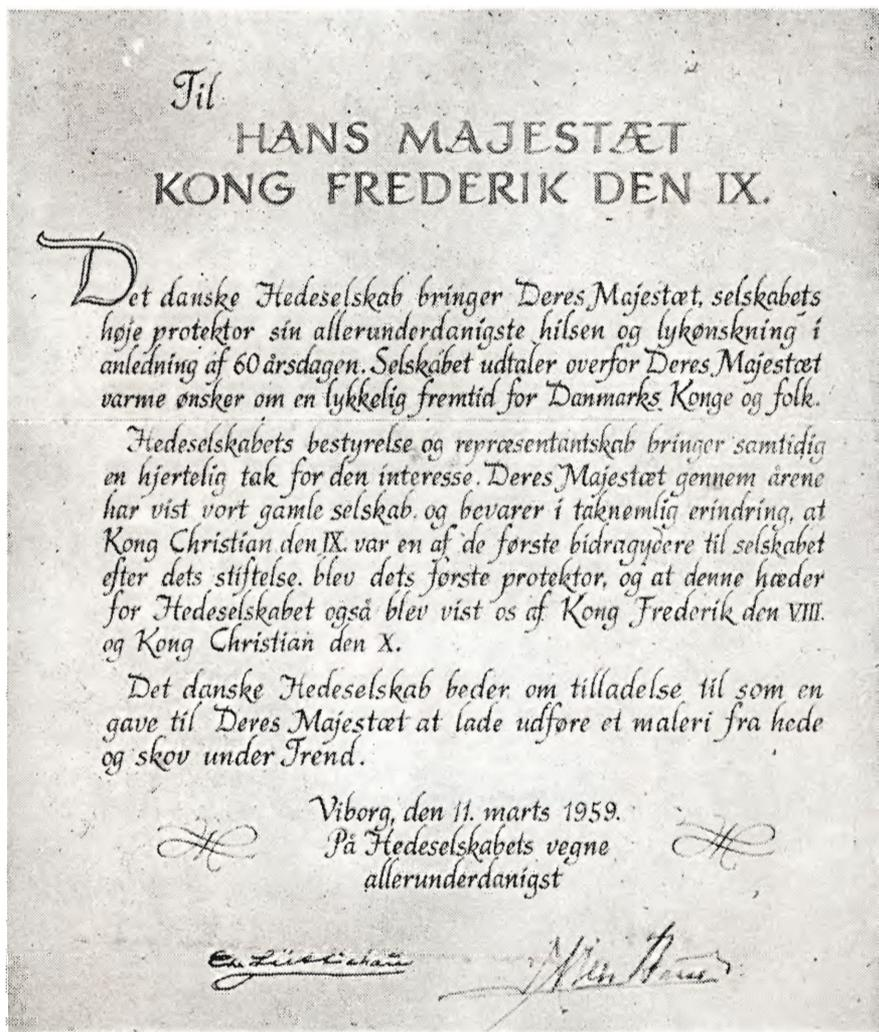 Til
HANS MAJESTÆT
KONG FREDERIK DEN IX.
Det danske Hedeselskab bringer Deres Majestæt, selskabets
høje protektor sin allerunderdanigste hilsen og lykønskning i
anledning af 60 årsdagen. Selskabet udtaler overfor Deres Majestæt
varme ønsker om en lykkelig fremtid for Danmarks Konge og folk.
Hedeselskabets bestyrelse og repræsentantskab bringer samtidig
en hjertelig tak for den interesse. Deres Majestæt gennem årene
har vist vort gamle selskab. og bevarer i taknemlig erindring, at
Kong Christian den IX. var en af de første bidragydere til selskabet
efter dets stiftelse. blev dets første protektor, og at denne hæder
for Hedeselskabet også blev vist os af Kong Frederik den VIII.
og Kong Christian den X.
Det danske Hedeselskab beder om tilladelse til som en
gave til Deres Majestæt at lade udføre et maleri fra hede
og skov under Trend.
Viborg, den 11. marts 1959.
På Hedeselskabets vegne
allerunderdanigst